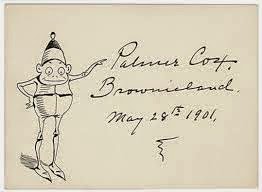 Palmer Cox,
Brownieland.
May 28th 1901,